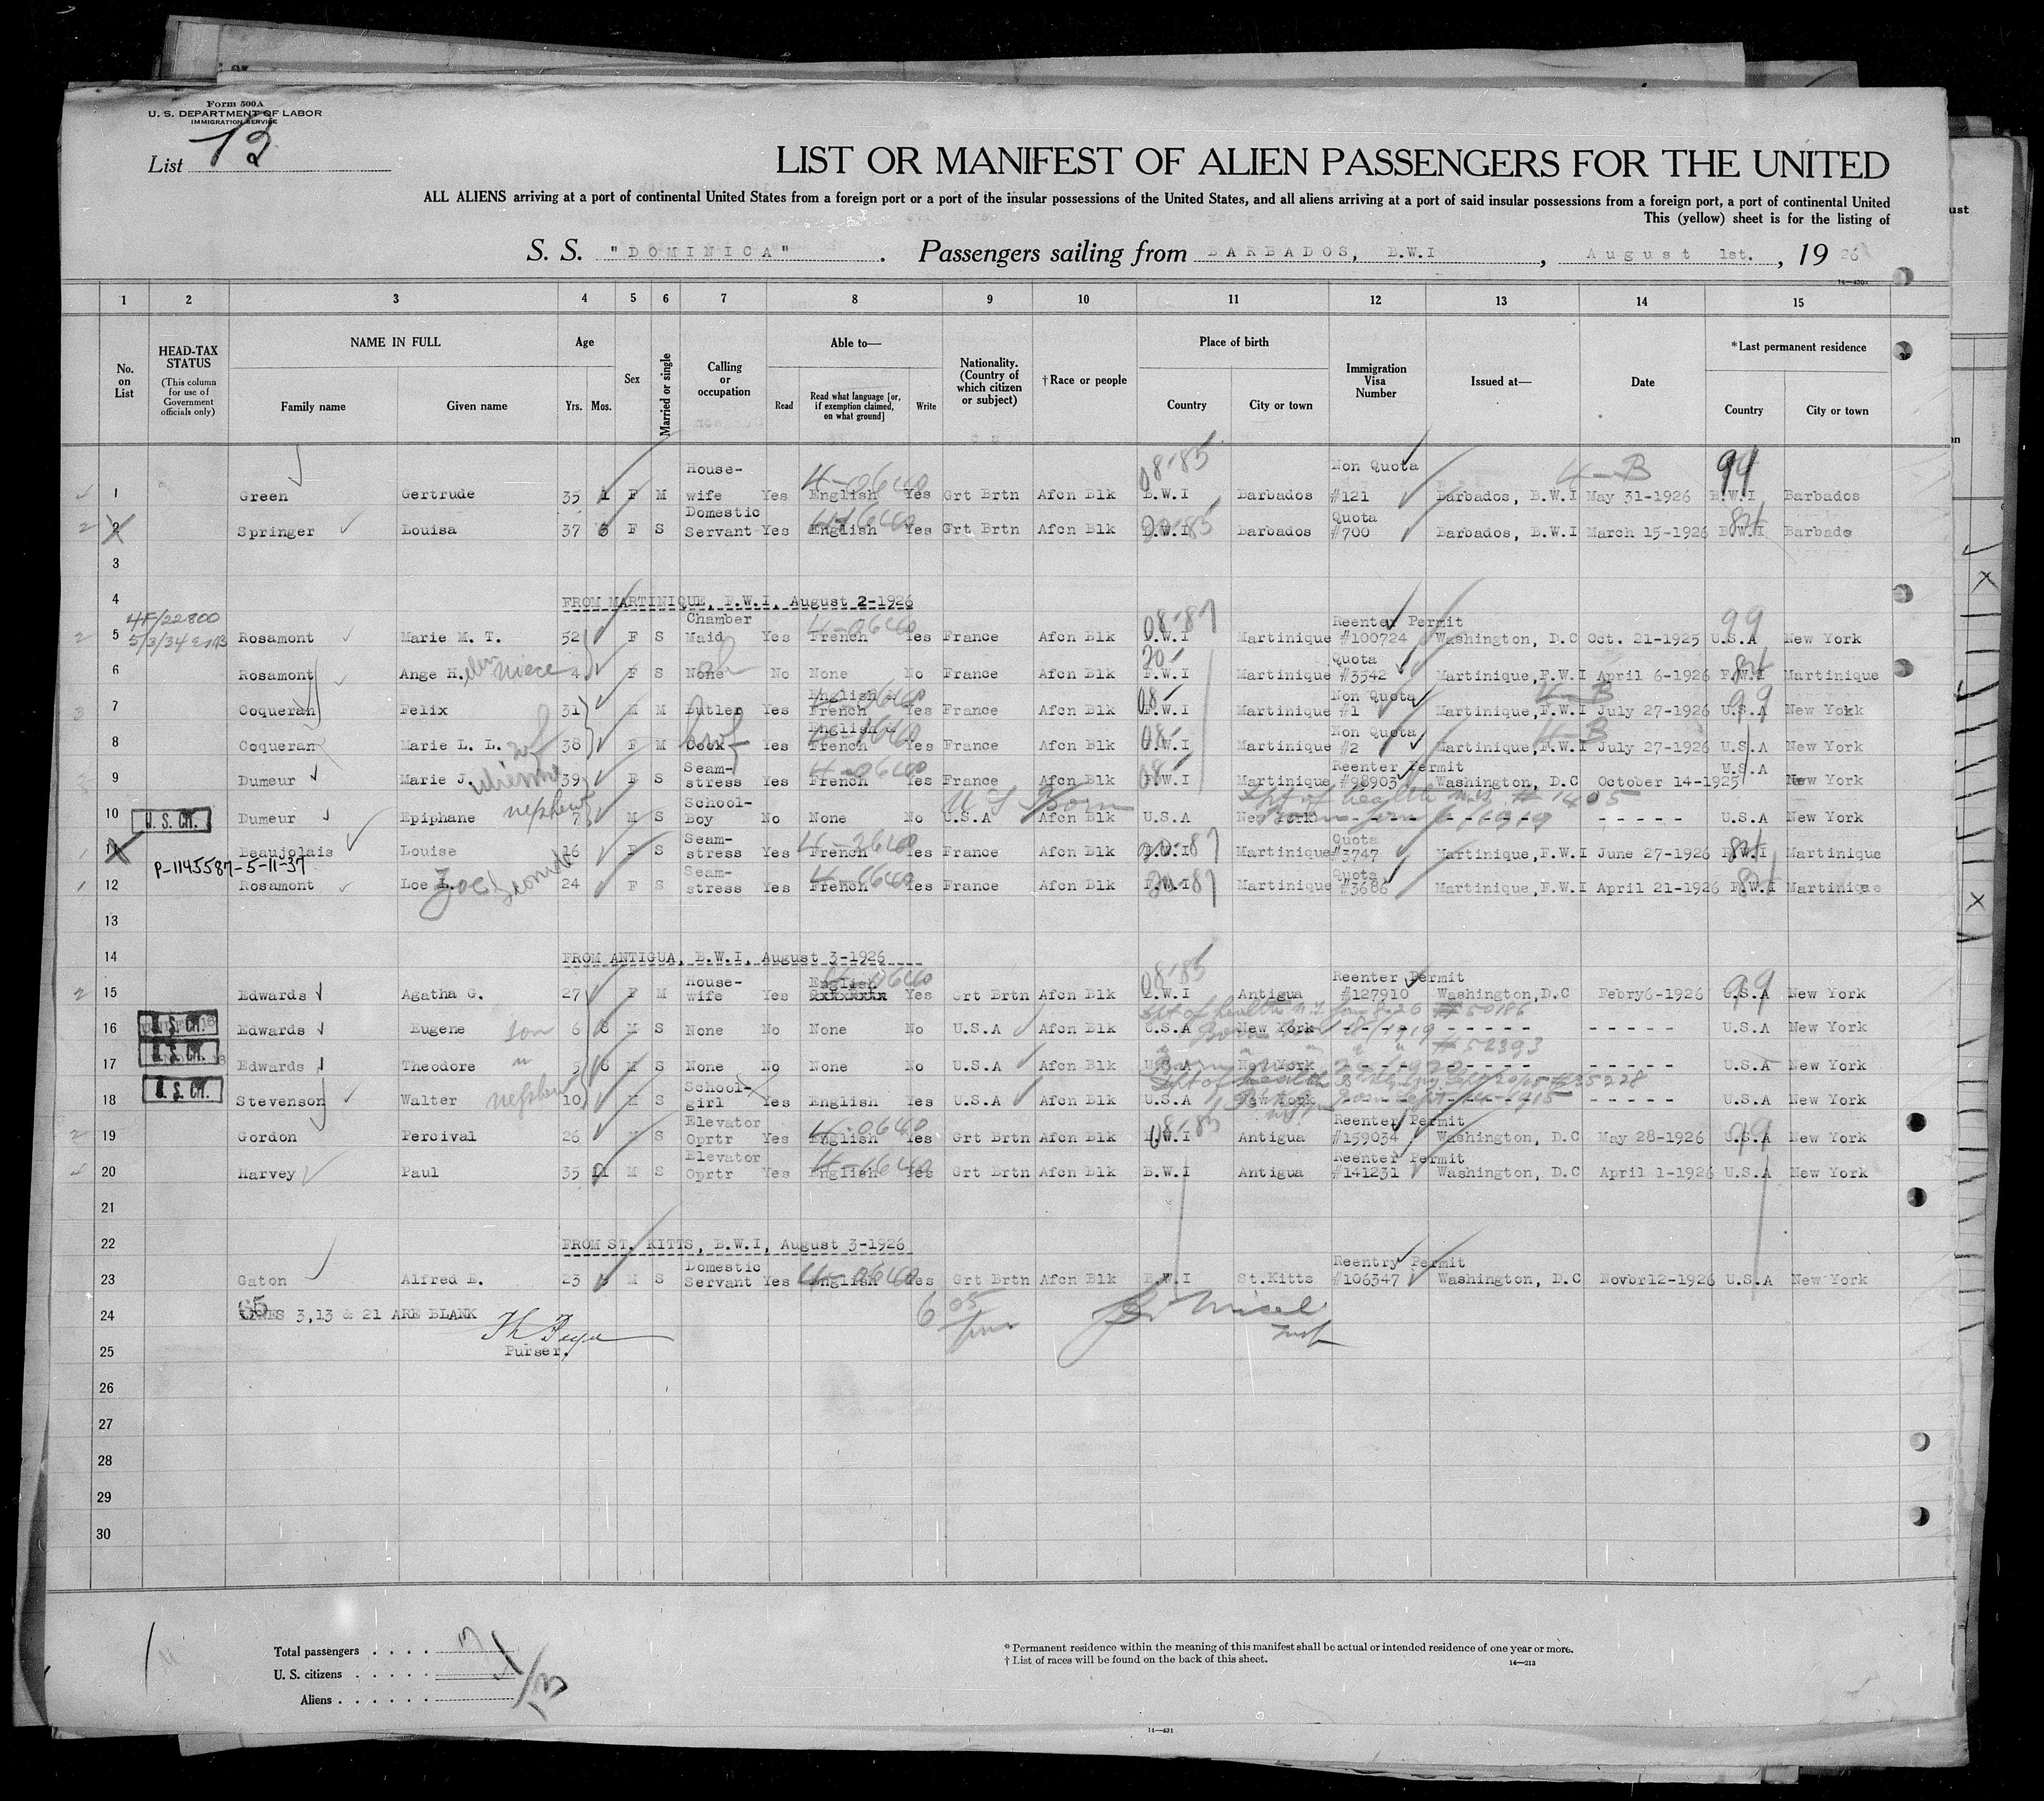 Form 500A
U. S. DEPARTMENT OF LABOR
IMMIGRATION SERVICE
List 13
LIST OR MANIFEST OF ALIEN PASSENGERS FOR THE UNITED
ALL ALIENS arriving at a port of continental United States from a foreign port or a port of the insular possessions of the United States, and all aliens arriving at a port of said insular possessions from a foreign port, a port of continental United
This (yellow) sheet is for the listing of
S. S. "DOMINICA" . Passengers sailing from BARBADOS, B.W.I , August 1st. , 19 26
1 2 3 4 5 6 7 8 9 10 11 12 13 14 15
No. on List
HEAD-TAX STATUS
(This column for use of Government officials only)
NAME IN FULL
Family name Given name
Age
Yrs. Mos.
Sex
Married or single
Calling or occupation
Able to—
Read
Read what language [or, if exemption claimed, on what ground]
Write
Nationality. (Country of which citizen or subject)
†Race or people
Place of birth
Country City or town
Immigration Visa Number
Issued at—
Date
*Last permanent residence
Country City or town
House- Non Quota 4-B
1 Green Gertrude 35 1 F M wife Yes English Yes Grt Brtn Afcn Blk B.W.I Barbados #121 Barbados, B.W.I May 31-1926 B.W.I Barbados
Domestic Quota
2 Springer Louisa 37 6 F S Servant Yes English Yes Grt Brtn Afcn Blk B.W.I Barbados #700 Barbados, B.W.I March 15-1926 B.W.I Barbado
3
4 FROM MARTINIQUE, F.W.I, August 2-1926
4F/22800
5/3/34
Chamber Reenter Permit
5 Rosamont Marie M. T. 52 F S Maid Yes French Yes France Afcn Blk F.W.I Martinique #100724 Washington, D.C Oct. 21-1925 U.S.A New York
Quota
6 Rosamont Ange H. niece 4 F S None No None No France Afcn Blk F.W.I Martinique #3542 Martinique,F.W.I April 6-1926 F.W.I Martinique
English & Non Quota 4-B
7 Coqueran Felix 31 M M Butler Yes French Yes France Afcn Blk F.W.I Martinique #1 Martinique,F.W.I July 27-1926 U.S.A New York
English & Non Quota 4-B
8 Coqueran Marie L. L. wf 38 F M Cook Yes French Yes France Afcn Blk F.W.I Martinique #2 Martinique,F.W.I July 27-1926 U.S.A New York
Seam- Reenter Permit
9 Dumeur Marie J. 39 F S stress Yes French Yes France Afcn Blk F.W.I Martinique #98903 Washington, D.C October 14-1925 U.S.A New York
School- U S Born
10 U.S. CIT. Dumeur Epiphane nephew 7 M S Boy No None No U.S.A Afcn Blk U.S.A New York - - - - - U.S.A New York
Seam- Quota
11 Beaujolais Louise 16 F S stress Yes French Yes France Afcn Blk F.W.I Martinique #3747 Martinique,F.W.I June 27-1926 F.W.I Martinique
P-1145587-5-11-37
Seam- Quota
12 Rosamont Loe L. 24 F S stress Yes French Yes France Afcn Blk F.W.I Martinique #3686 Martinique,F.W.I April 21-1926 F.W.I Martinique
13
14 FROM ANTIGUA, B.W.I, August 3-1926
House- English Reenter Permit
15 Edwards Agatha G. 27 F M wife Yes xxxxxxx Yes Grt Brtn Afcn Blk B.W.I Antigua #127910 Washington,D.C Febry6-1926 U.S.A New York
16 U.S. CIT. Edwards Eugene son 6 8 M S None No None No U.S.A Afcn Blk U.S.A New York - - - - - U.S.A New York
17 U.S. CIT. Edwards Theodore 5 6 M S None No None No U.S.A Afcn Blk U.S.A New York - - - - - U.S.A New York
School-
18 U.S. CIT. Stevenson Walter nephew 10 M S girl Yes English Yes U.S.A Afcn Blk U.S.A New York - - - - - U.S.A New York
Elevator Reenter Permit
19 Gordon Percival 26 M S Oprtr Yes English Yes Grt Brtn Afcn Blk B.W.I Antigua #159034 Washington, D.C May 28-1926 U.S.A New York
Elevator Reenter Permit
20 Harvey Paul 35 11 M S Oprtr Yes English Yes Grt Brtn Afcn Blk B.W.I Antigua #141231 Washington, D.C April 1-1926 U.S.A New York
21
22 FROM ST. KITTS, B.W.I, August 3-1926
Domestic Reentry Permit
23 Gaton Alfred E. 23 M S Servant Yes English Yes Grt Brtn Afcn Blk B.W.I St.Kitts #106347 Washington, D.C Novbr12-1926 U.S.A New York
24 LINES 3,13 & 21 ARE BLANK
25 Purser.
26
27
28
29
30
Total passengers . . . . 17
U. S. citizens . . . . .
Aliens . . . . . . 13
* Permanent residence within the meaning of this manifest shall be actual or intended residence of one year or more.
† List of races will be found on the back of this sheet.
14—213
14—431